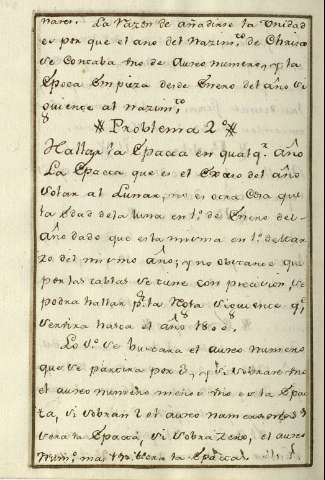 La Razon de añadirse la Unidad
es por que el año del Nazim.to de Christo
se Contaba uno de Aureo numero, y la
Epoca Empieza desde Enero del año Si
guiente al nazim.to
# Problema 2.º #
Hallar la Epacta en qualq.r Año
La Epacta que es el Exceso del año
Solar al Lunar, no es otra Cosa que
la Edad de la luna en 1.º de Enero del
Año dado que es la misma en 1.º de Mar
zo del mismo año; y no obstante que
por las tablas se tiene con precision, se
podra hallar p.r la Nota Siguiente q.e
servira hasta el año
Lo 1.º se buscara el aureo numero
que se partira por 3, y si sobrare uno
el aureo numero menos uno es la Epac
ta, si sobran 2 el aureo numero
sera la Epacta, si sobra Zero, el aureo
num.o mas sera la Epacta